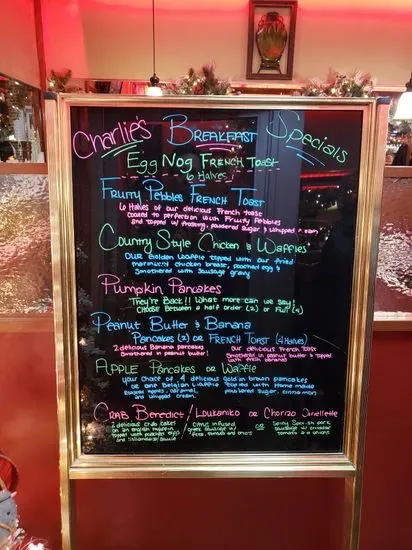 Charlie's Breakfast Specials
Egg Nog French Toast
6 Halves
Fruity Pebbles French Toast
6 Halves of our delicious French toast
cooked to perfection with Fruity Pebbles
and topped w/ frosting, powdered sugar & whipped cream
Country Style Chicken & Waffles
Our golden waffle topped with our fried
marinated chicken breast, poached egg &
smothered with sausage gravy
Pumpkin Pancakes
They're Back!! What more can we say!
Choose between a half order (2) or Full (4)
Peanut Butter & Banana
Pancakes (2) or French Toast (4 Halves)
2 delicious Banana pancakes our delicious French Toast
smothered in peanut butter! smothered in peanut butter & topped
with fresh bananas
Apple Pancakes or Waffle
your choice of 4 delicious golden brown pancakes
or one Belgian waffle topped with home made
apples, caramel, powdered sugar, cinnamon
and whipped cream.
Crab Benedict / Loukaniko or Chorizo Omellette
2 delicious crab cakes citrus infused or spicy Spanish pork
on an english muffin greek sausage w/ sausage w/ cheddar
topped with poached eggs feta, tomato and onions tomato & onions
and hollandaise sauce